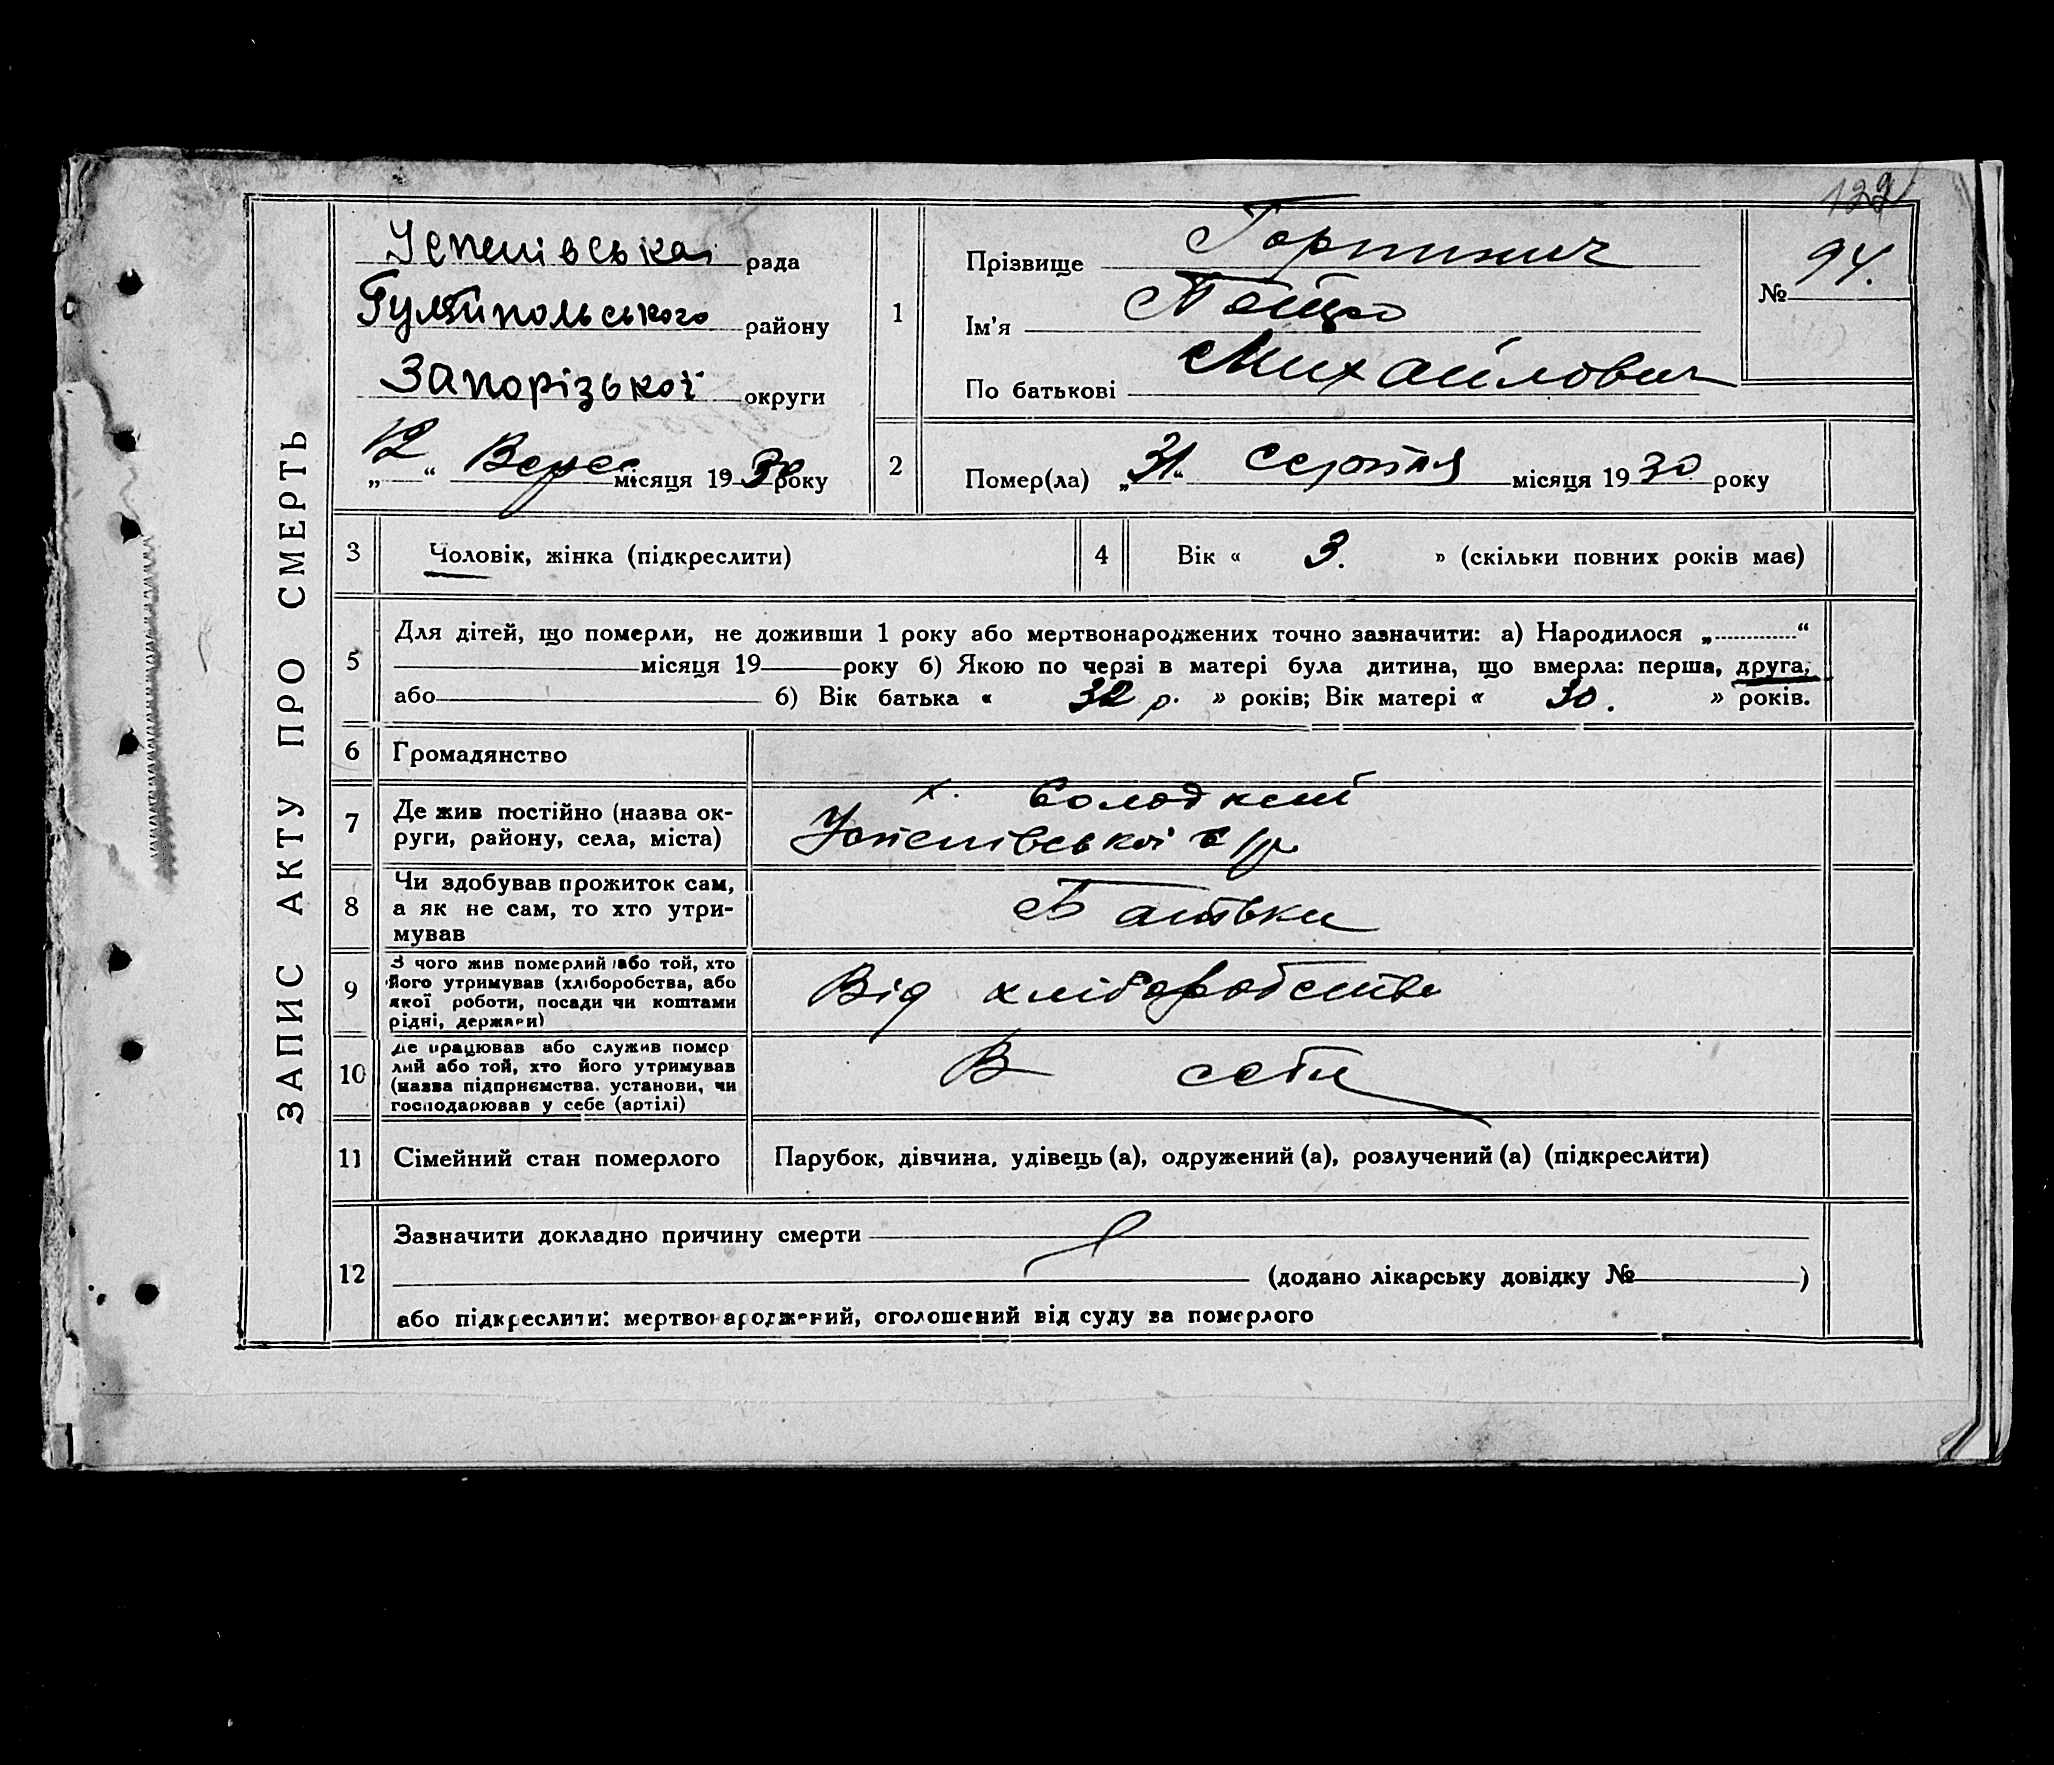 122
ЗАПИС АКТУ ПРО СМЕРТЬ
Успенівська рада
Гуляйпольського району
Запорізької округи
„12“ Верес місяця 1930 року
1
Прізвище Горпинич
Ім'я
По батькові Михайлович
№ 94.
2
Помер(ла) „31“ Серпня місяця 1930 року
3 Чоловік, жінка (підкреслити)
4 Вік « 3. » (скільки повних років має)
5
Для дітей, що померли, не доживши 1 року або мертвонароджених точно зазначити: а) Народилося „ “
місяця 19 року б) Якою по черзі в матері була дитина, що вмерла: перша, друга,
або б) Вік батька « 32 р. » років; Вік матері « 30. » років.
6 Громадянство
7
Де жив постійно (назва ок-
руги, району, села, міста)
х.
Успенівської с/р
8
Чи здобував прожиток сам,
а як не сам, то хто утри-
мував
Батьки
9
З чого жив померлий або той, хто
його утримував (хліборобства, або
якої роботи, посади чи коштами
рідні, держави)
Від хліборобства
10
Де працював або служив помер
лий або той, хто його утримував
(назва підприємства, установи, чи
господарював у себе (артілі)
В
11 Сімейний стан померлого
Парубок, дівчина, удівець (а), одружений (а), розлучений (а) (підкреслити)
12
Зазначити докладно причину смерти
(додано лікарську довідку № )
або підкреслити: мертвонароджений, оголошений від суду за померлого